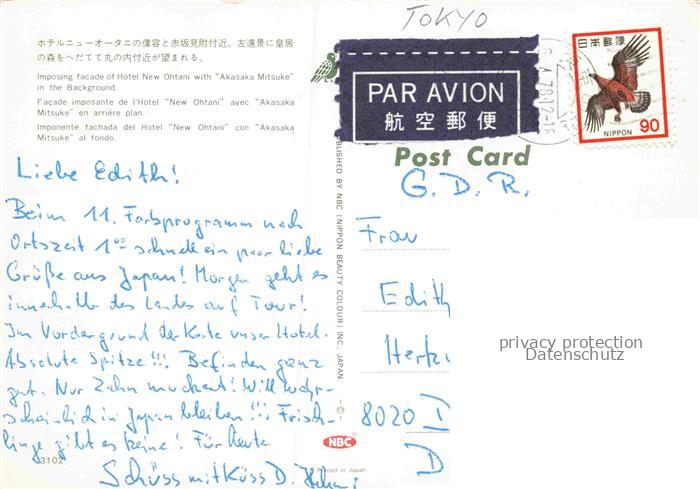 TOKYO
ホテルニューオータニの偉容と赤坂見附付近。左遠景に皇居
の森をへだてて丸の内付近が望まれる。
Imposing facade of Hotel New Ohtani with "Akasaka Mitsuke"
in the Background.
Façade imposante de l'Hotel "New Ohtani" avec "Akasaka
Mitsuke" en arrière plan.
Imponente fachada del Hotel "New Ohtani" con "Akasaka
Mitsuke" al fondo.
PAR AVION
航空郵便
日本郵便
NIPPON 90
Post Card
G.D.R.
Liebe Edith!
Beim 11. Farbprogramm nach
Ortszeit 1°° schnell ein paar liebe
Grüße aus Japan! Morgen geht es
innerhalb des Landes auf Tour!
Im Vordergrund der Karte unser Hotel.
Absolute Spitze!!! Befinden ganz
gut. Nur Zahn muckert! Will wahr-
scheinlich in Japan bleiben!!! Frisch-
linge gibt es keine! Für heute
Schüss mit Küss D.
Frau
Edith
8020 D
D
PUBLISHED BY NBC (NIPPON BEAUTY COLOUR) INC. JAPAN
NBC
Printed in Japan
3102
privacy protection
Datenschutz